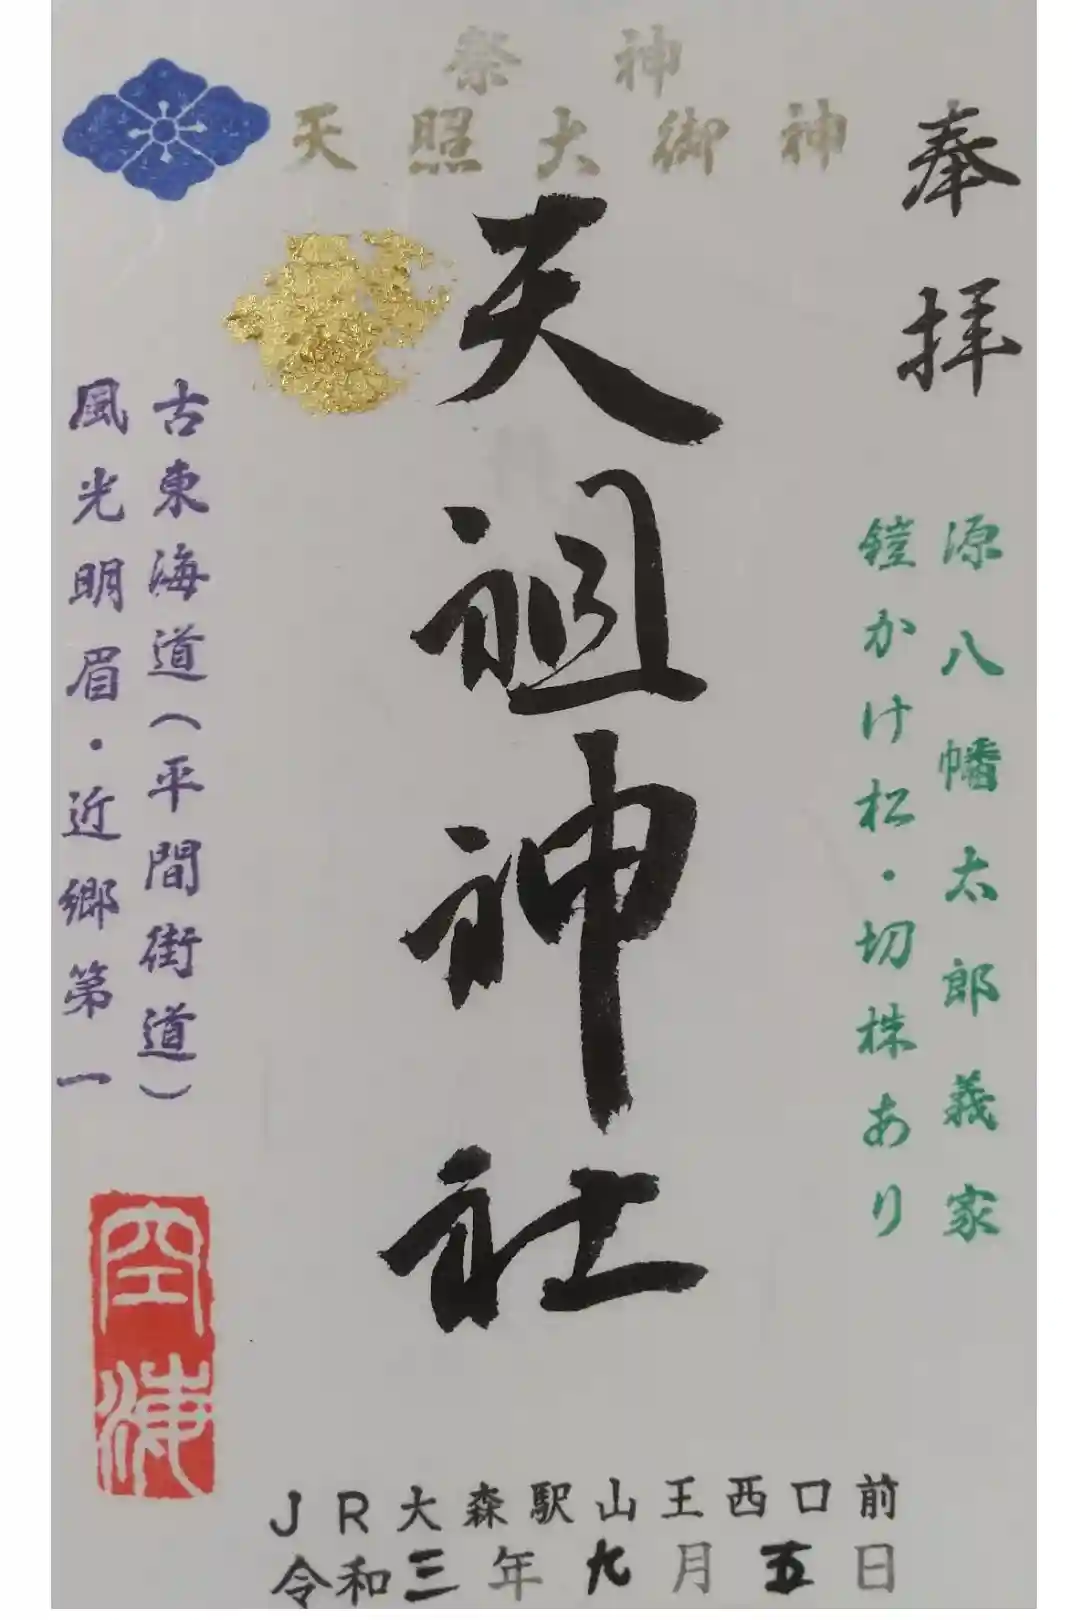 奉拝
源八幡太郎義家
鎧かけ松・切株あり
祭神
天照大御神
天祖神社
古東海道(平間街道)
風光明眉・近郷第一
空海
JR大森駅山王西口前
令和三年九月五日